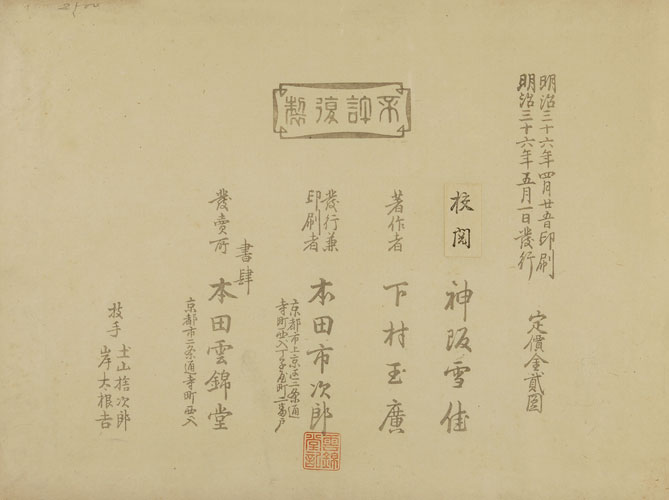 不許復製
明治三十六年四月廿五日印刷
明治三十六年五月一日發行
定價金貳圓
校閲 神阪雪佳
著作者 下村玉廣
發行兼印刷者 本田市次郎
京都市上京区三条通
寺町西入丁子屋町二番戸
書肆
發賣所 本田雲錦堂
京都市二条通寺町西入
技手 土山捨次郎
岸太根吉
雲錦堂